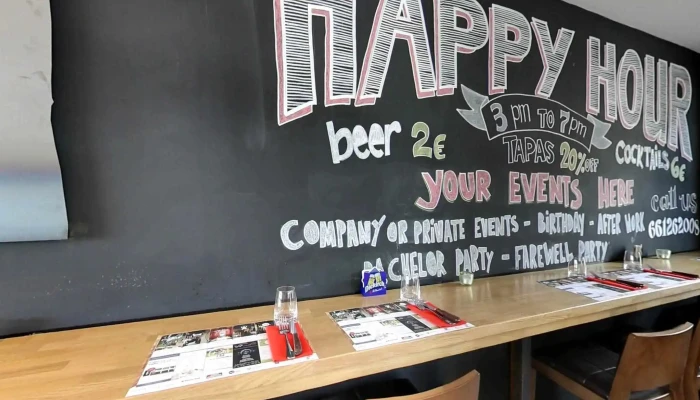 HAPPY HOUR
3 pm TO 7pm
beer 2€
TAPAS 20% off
COCKTAILS 6€
YOUR EVENTS HERE
call us
661262005
COMPANY OR PRIVATE EVENTS - BIRTHDAY - AFTER WORK
BACHELOR PARTY - FAREWELL PARTY